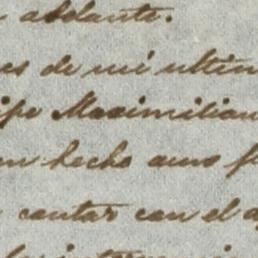 adelante.
es de mi ultim
ipe Maximilian
n hecho unos f
contar con el a